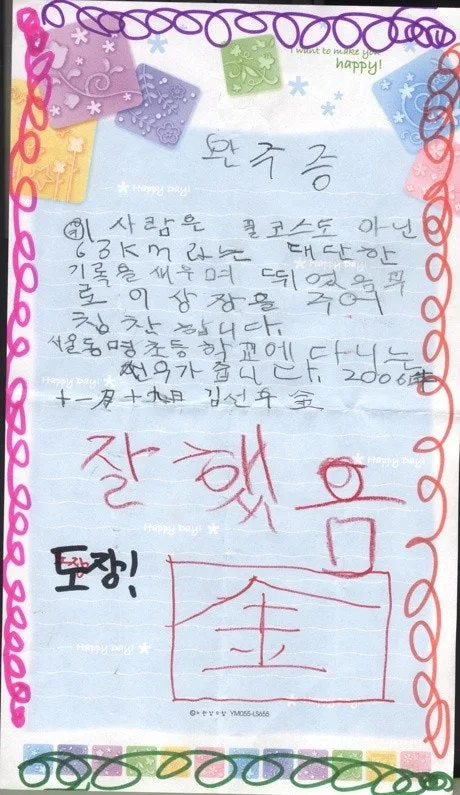 I want to make you
happy!
완주증
Happy Day!
위 사람은 풀코스도 아닌
63KM 라는 대단한
기록을 세우며
로 이 상장을 주어
칭찬 합니다.
서울동명초등학교에 다니는
선우가 줍니다. 2006年
十一月 十九日 김선우 金
잘했음
Happy Day!
Happy Day!
도장!
金
Happy Day!
YM055-LS655